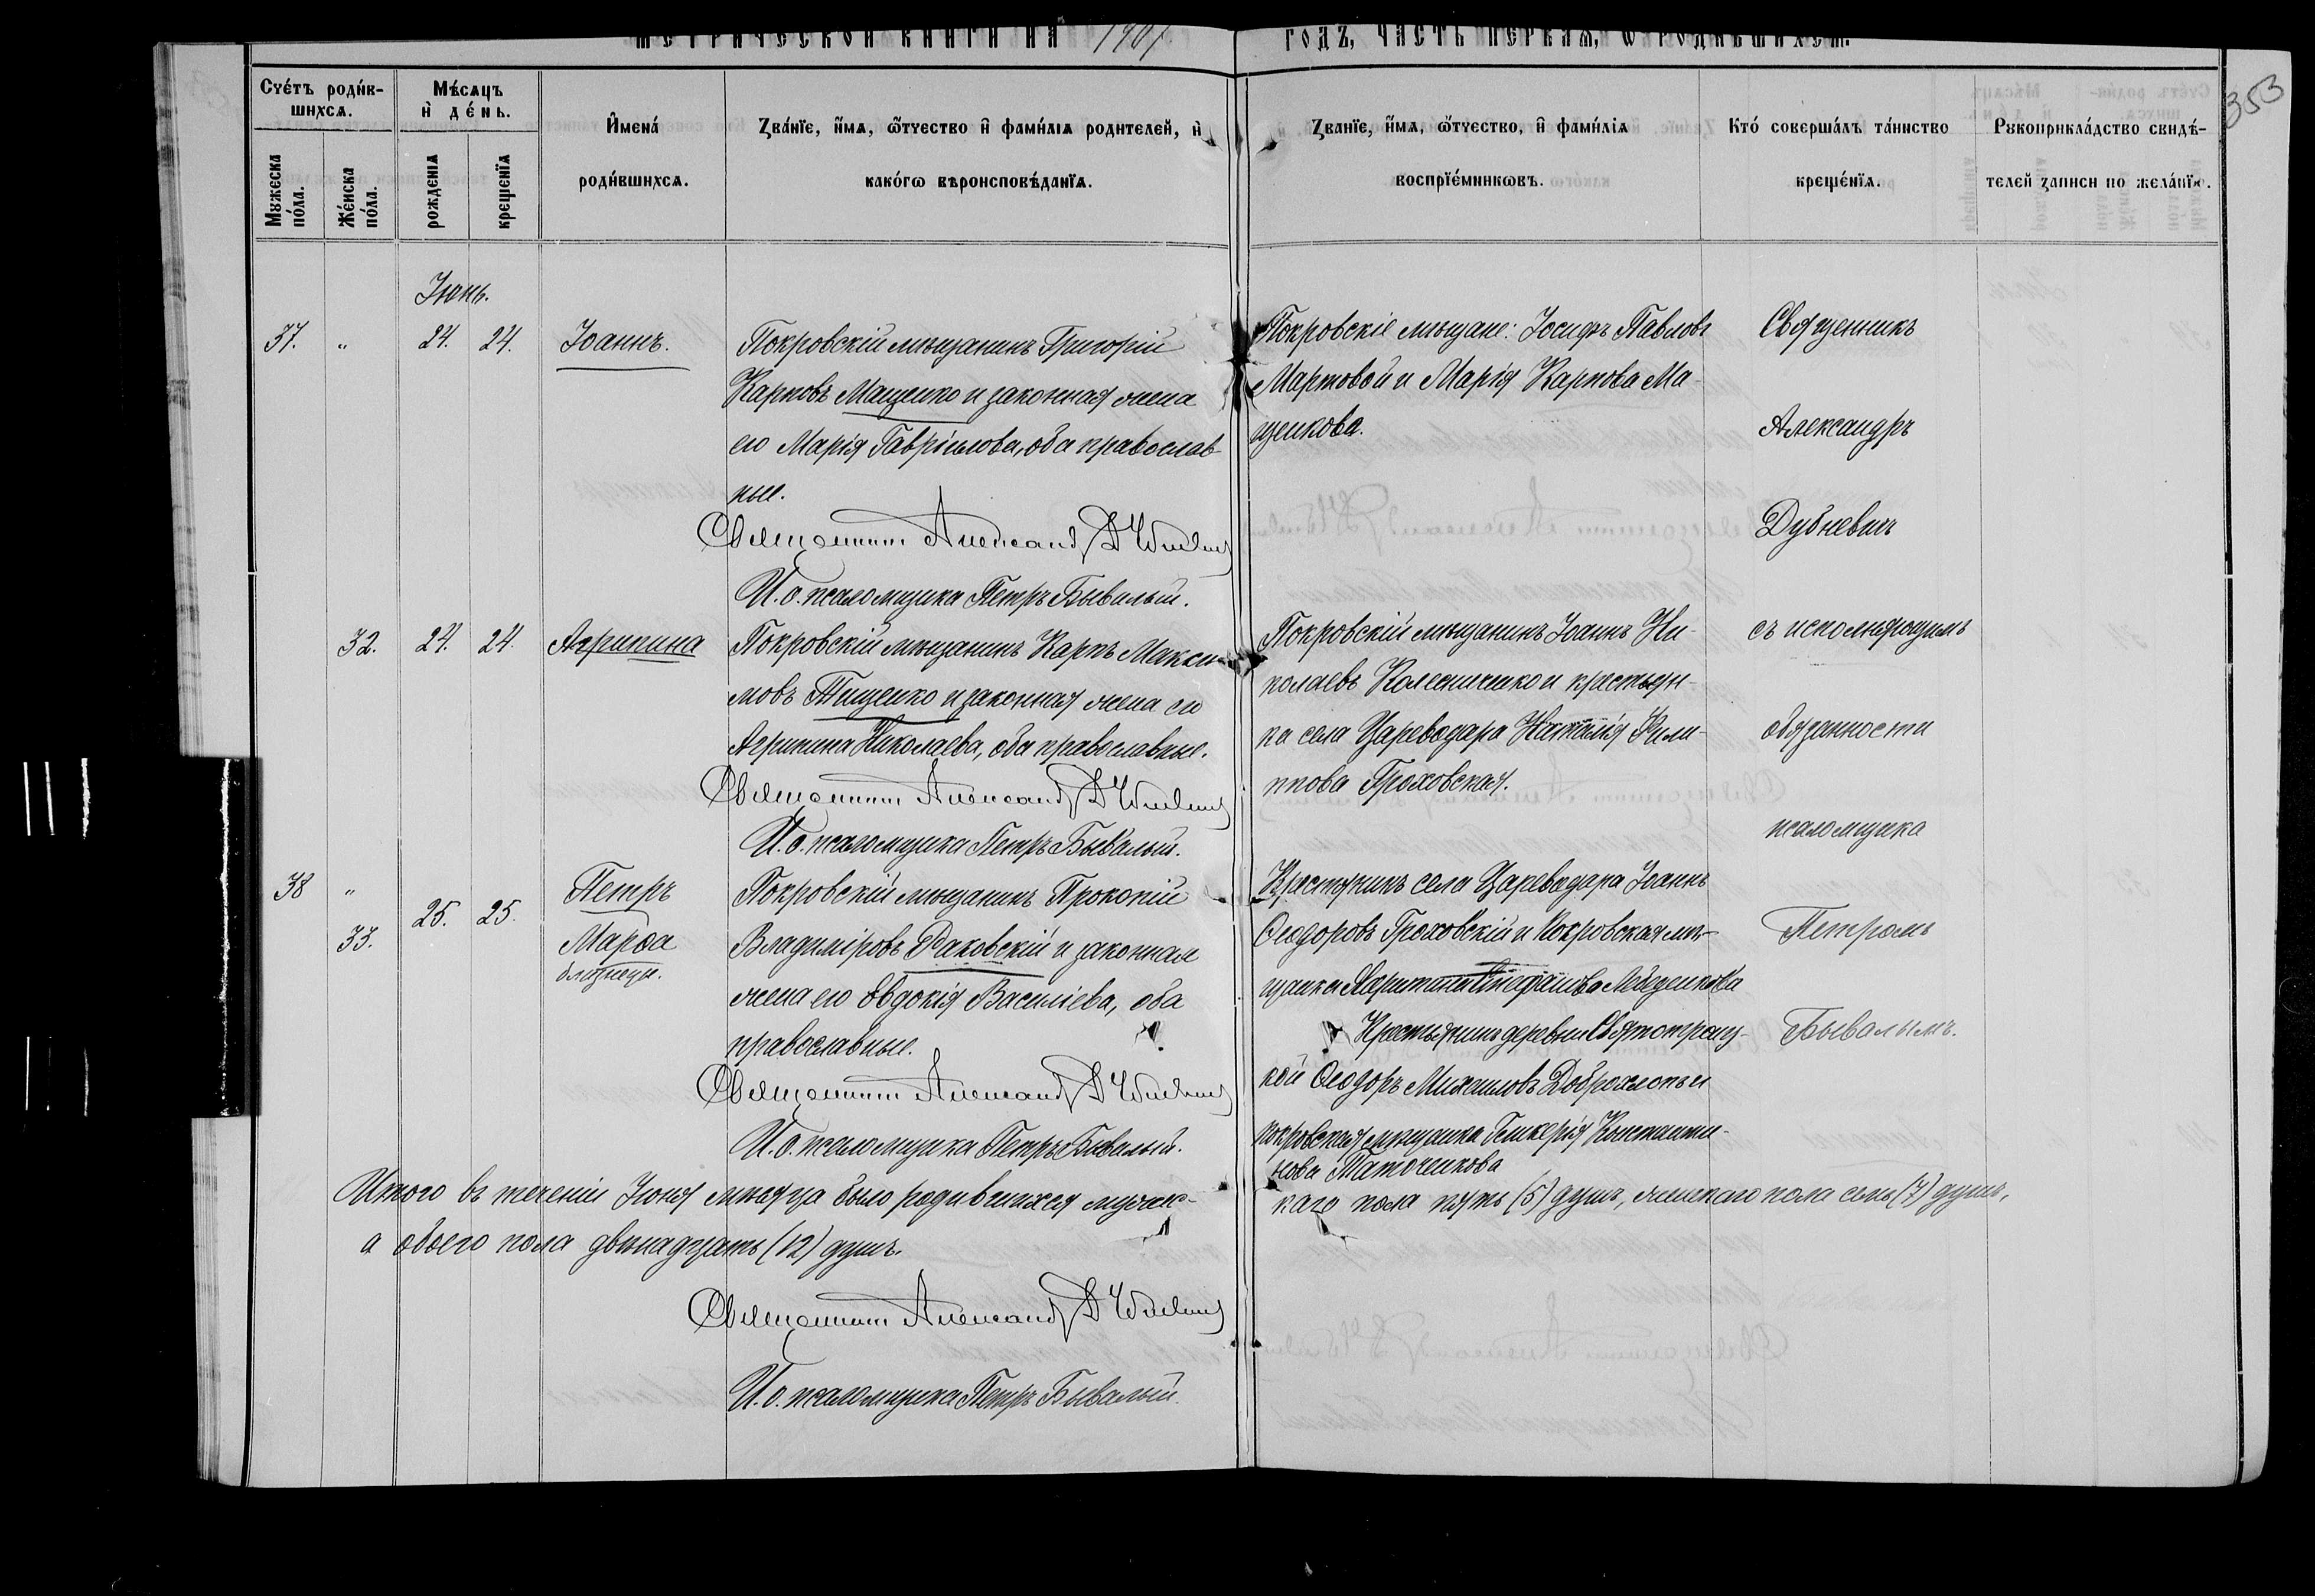 МЕТРИЧЕСКОЙ КНИГИ НА 1907
ГОДЪ, ЧАСТЬ ПЕРВАЯ, Ѡ РОДИВШИХСѦ.
353
Счéтъ роди́в-
шихсѧ.
Мꙋжеска
по́ла.
Же́нска
по́ла.
Мѣ́сѧцъ
и҆ де́нь.
рожденїѧ
крещенїѧ
И҆мена́
роди́вшихсѧ.
Зва́нїе, и҆́мѧ, ѻ҆́тчество и҆ фами́лїѧ родителей, и҆
како́гѡ вѣроисповѣ́данїѧ.
Зва́нїе, и҆́мѧ, ѻ҆́тчество, и҆ фами́лїѧ
воспрїе́мникѡвъ.
Кто́ соверша́лъ та́инство
креще́нїѧ.
Рꙋкоприкла́дство свидѣ́-
телей записи по жела́нїю.
Іюнь.
37. " 24. 24. Іоаннъ.
Покровскій мѣщанинъ Григорій
Карповъ Мащенко и законная жена
его Марія Гавріилова, оба православ-
ные.
Священникъ Александръ Дубневичъ
И. о. псаломщика Петръ Бывалый.
Покровскіе мѣщане: Іосифъ Павловъ
Мартовой и Марія Карпова Ма-
щенкова.
32. 24. 24. Агрипина
Покровскій мѣщанинъ Карпъ Макси-
мовъ Тищенко и законная жена его
Агрипина Николаева, оба православные.
Священникъ Александръ Дубневичъ
И. о. псаломщика Петръ Бывалый.
Покровскій мѣщанинъ Іоаннъ Ни-
колаевъ Колесниченко и крестьян-
ка села Цареводара Наталія Фили-
ппова Гроховская.
38 " 25. 25. Петръ
33. Марѳа
близнецы.
Покровскій мѣщанинъ Прокопій
Владиміровъ Раковскій и законная
жена его Евдокія Василіева, оба
православные.
Священникъ Александръ Дубневичъ
И. о. псаломщика Петръ Бывалый.
Крестьянинъ села Цареводара Іоаннъ
Ѳеодоровъ Гроховскій и Покровская мѣ-
щанка Харитина Стефанова Лебеденкова
Крестьянинъ деревни Святотроиц-
кой Ѳеодоръ Михаиловъ Доброхлопъ и
покровская мѣщанка Гликерія Константи-
нова
Священникъ
Александръ
Дубневичъ
съ исполняющимъ
обязанности
псаломщика
Петромъ
Бывалымъ.
Итого въ теченіи Іюня мѣсяца было родившихся мужес-
каго пола пять (5) душъ, женскаго пола семь (7) душъ,
а обоего пола двѣнадцать (12) душъ.
Священникъ Александръ Дубневичъ
И. о. псаломщика Петръ Бывалый.